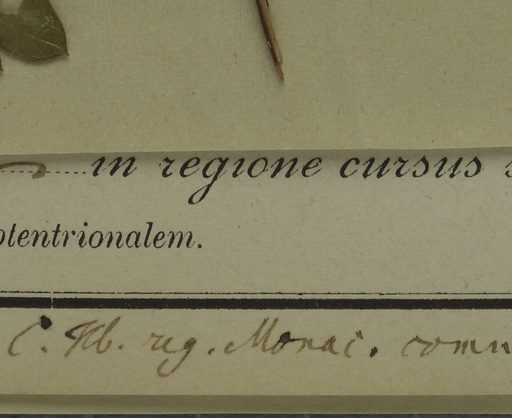 in regione cursus s
ptentrionalem.
C. Hb. reg. Monac. comu